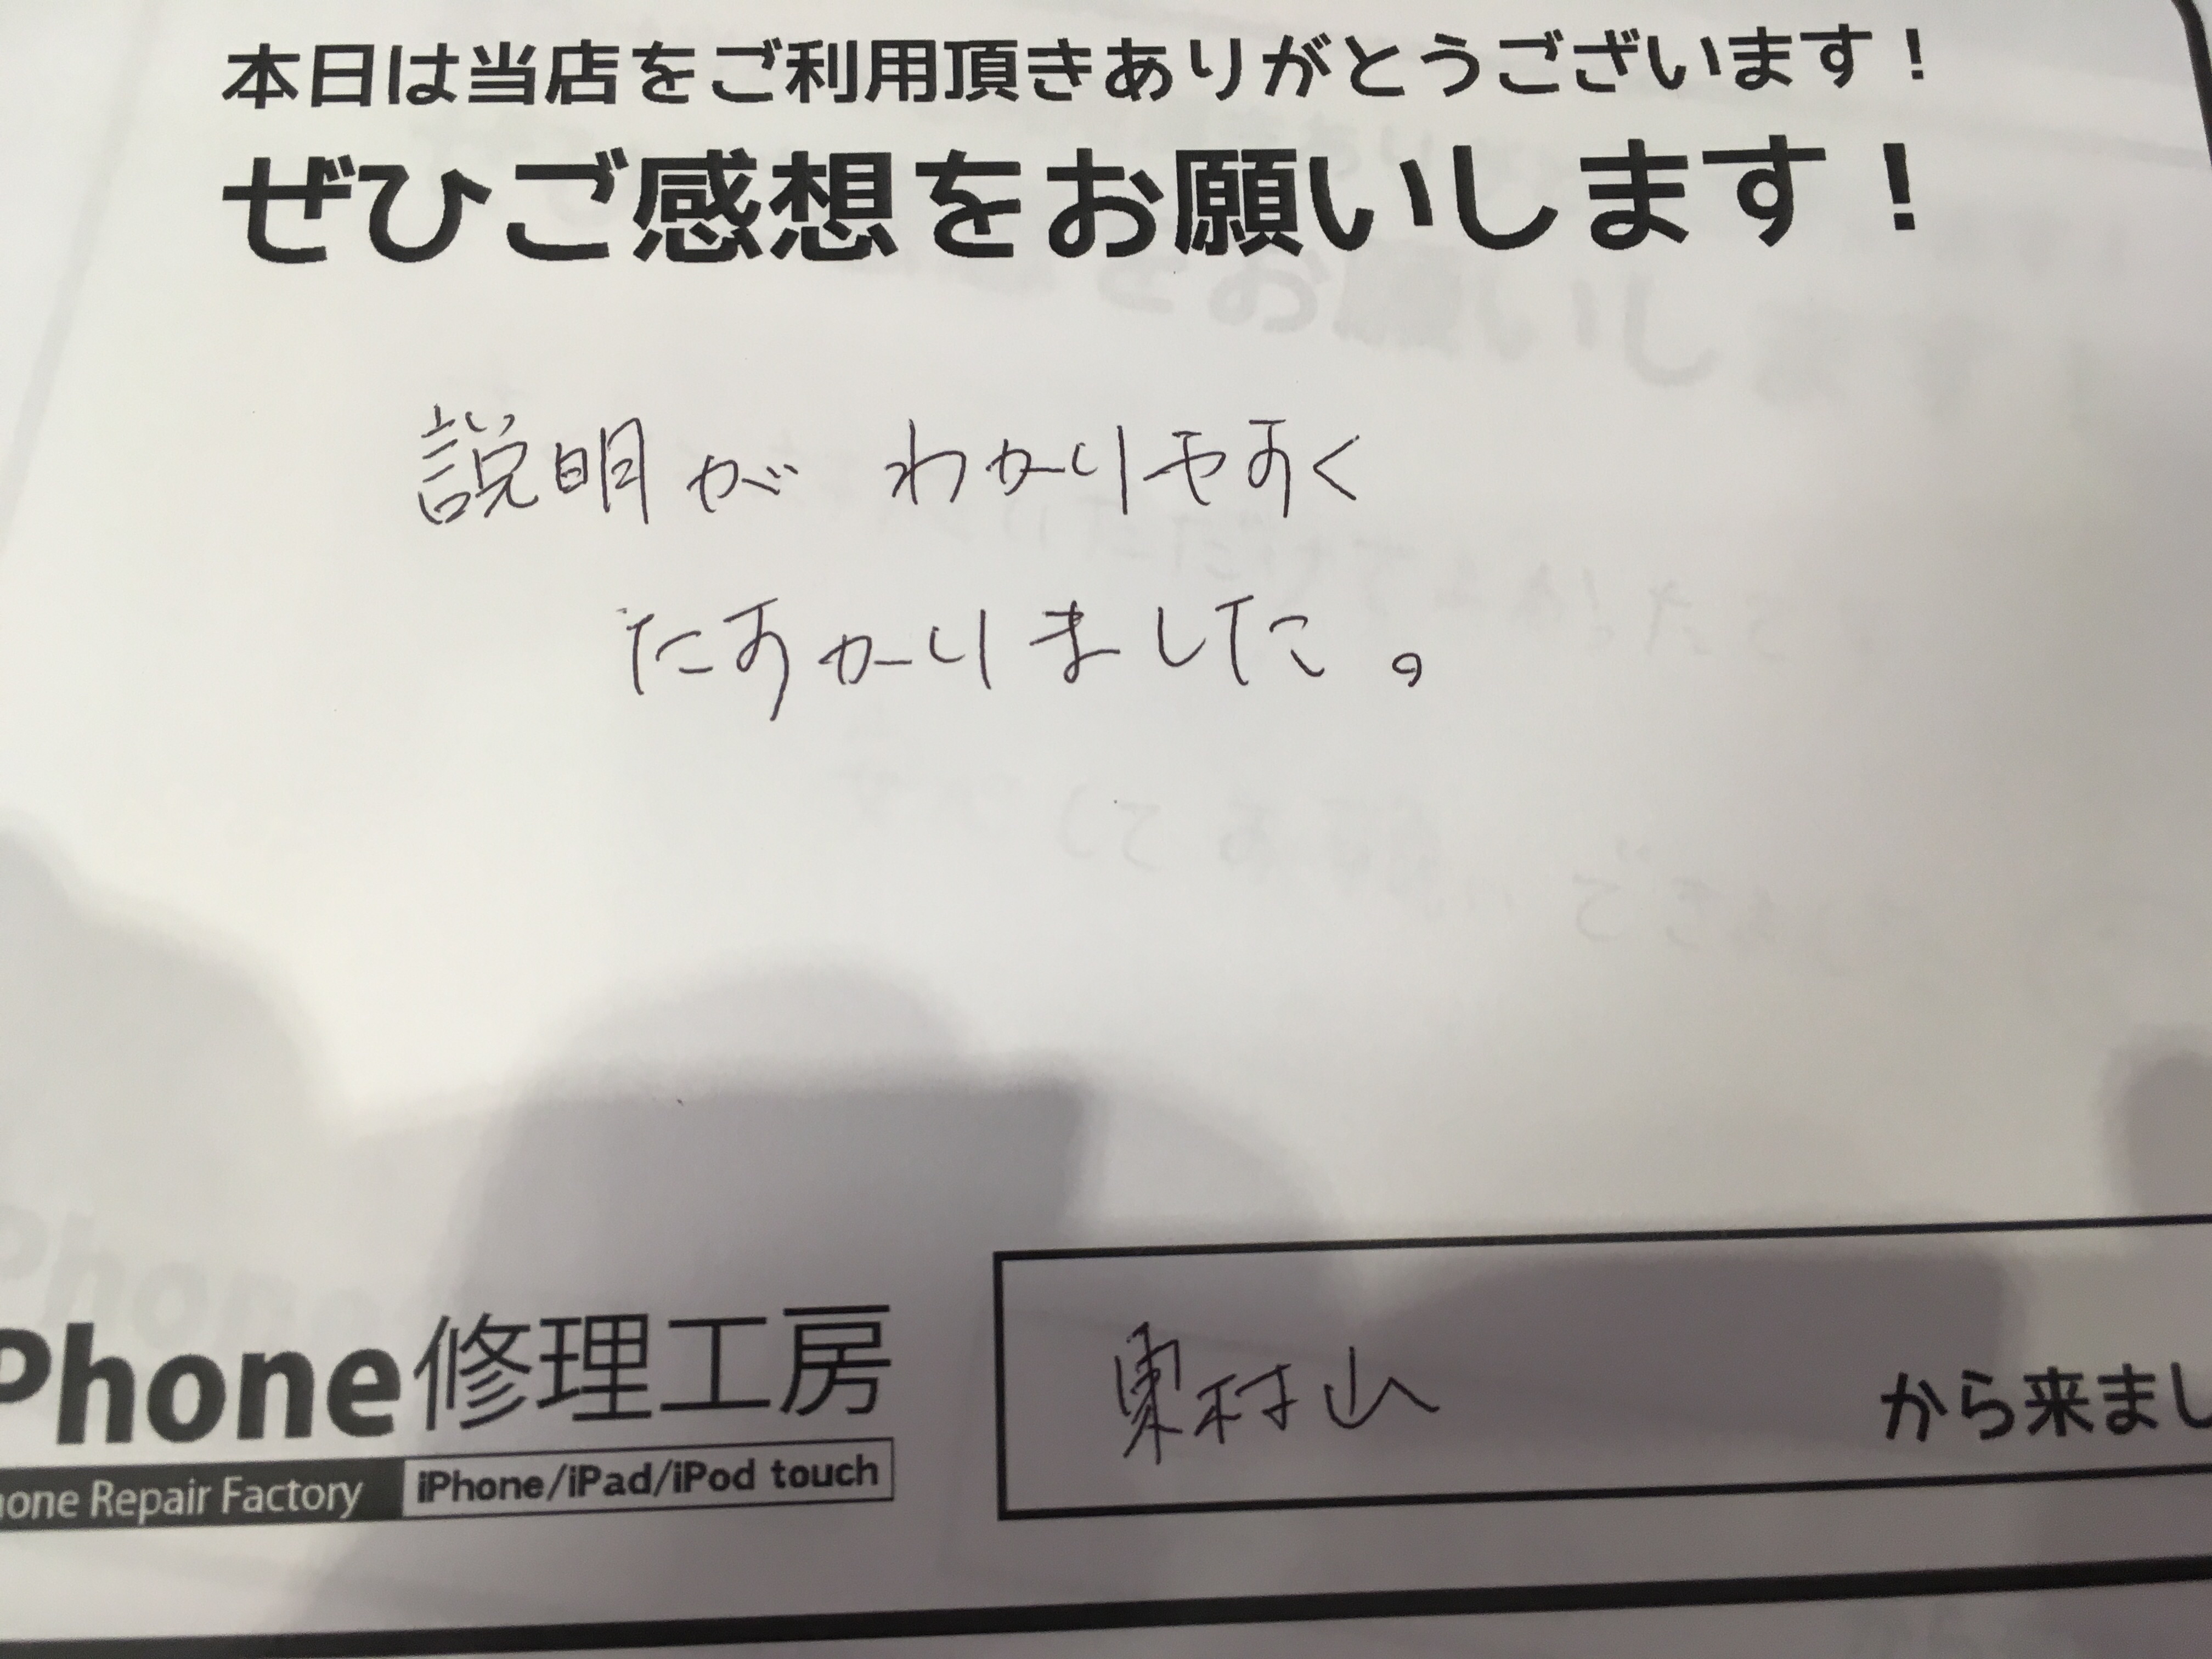 本日は当店をご利用頂きありがとうございます！
ぜひご感想をお願いします！
説明が わかりやすく
たすかりました。
Phone修理工房
one Repair Factory iPhone/iPad/iPod touch
東村山 から来まし